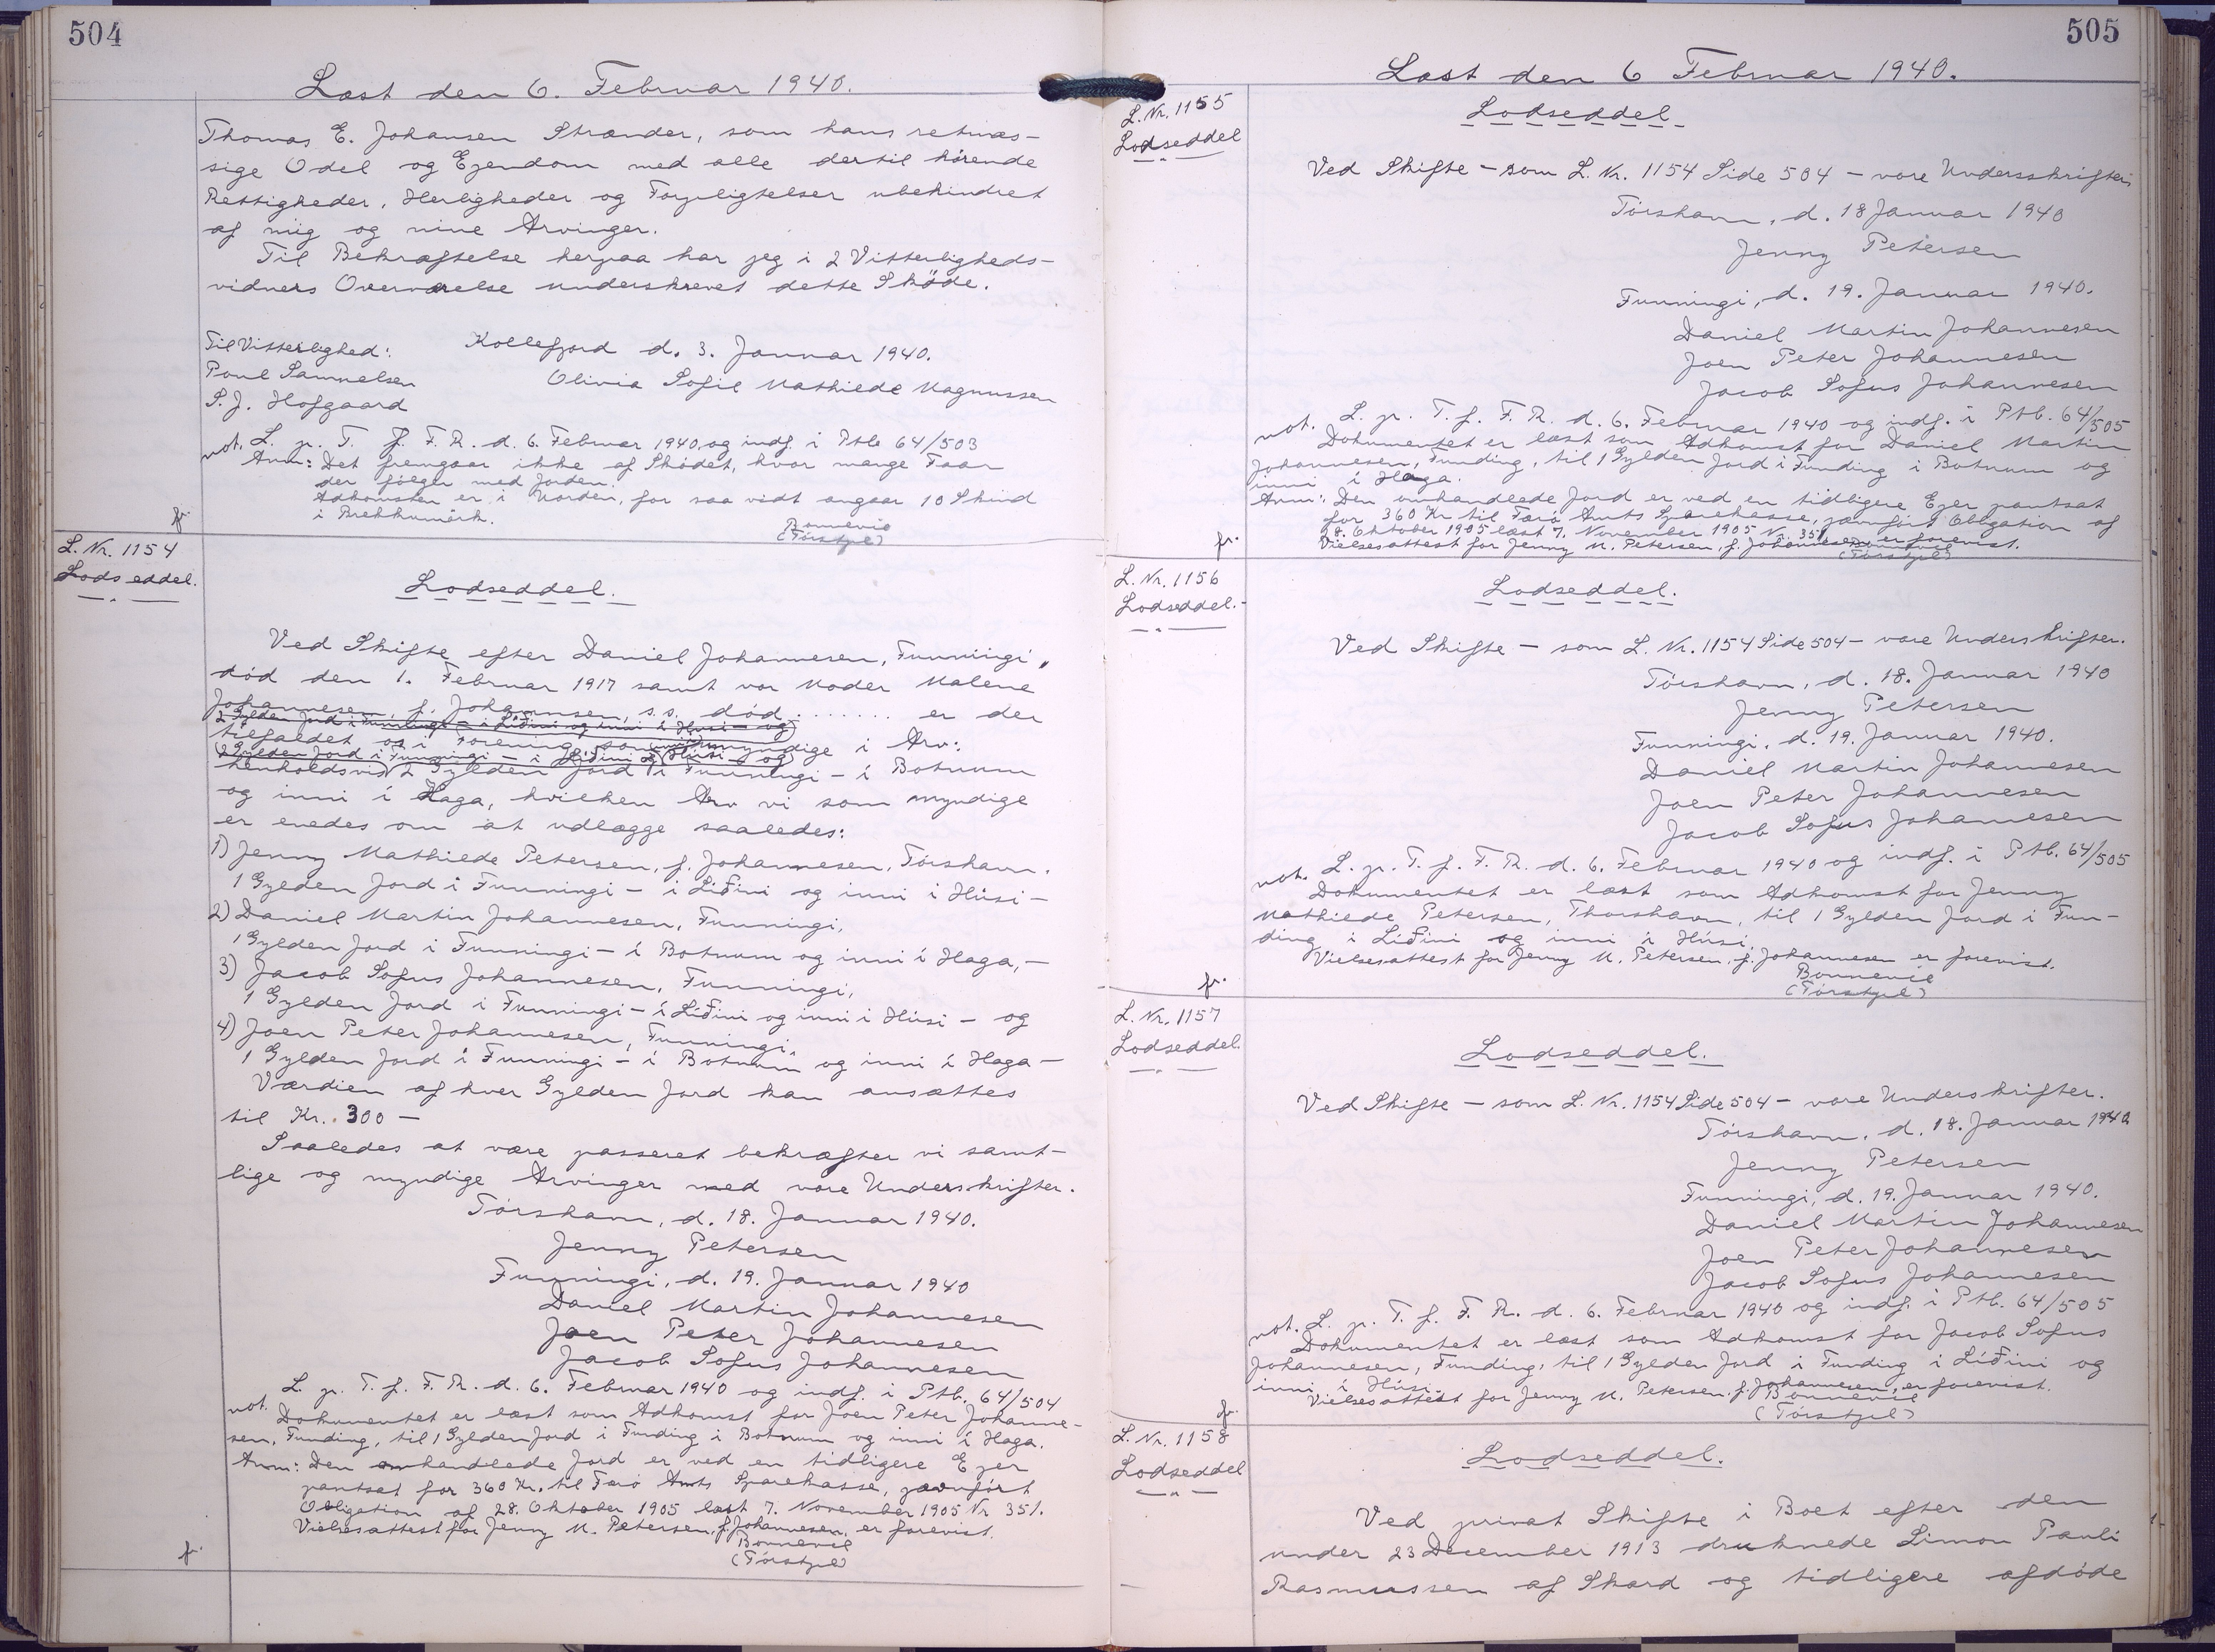 504
Læst den 6. Februar 1940.
Thomas E. Johansen Strænder, som hans retmæs-
sige Odel og Ejendom med alle dertil hörende
Rettigheder, Herligheder og Forpligtelser ubehindret
af mig og mine Arvinger.
Til Bekræftelse herpaa har jeg i 2 Vitterligheds-
vidners Overværelse underskrevet dette Sköde.
Kollefjord d. 3. Januar 1940.
Til Vitterlighed:
Olivia Sofie Mathilde Magnussen
Poul Samuelsen
S. J. Hofgaard
not. L. p. T. f. F. R. d. 6. Februar 1940 og indf. i Ptb 64/503
Anm: Det fremgaar ikke af Skødet, hvor mange Faar
der følger med Jorden.
Adkomsten er i Norden, for saa vidt angaar 10 Skind
i Brekkumörk.
Bonnevie
(Tórstjul)
fr.
L. Nr. 1154
Lodseddel.
Lodseddel.
Ved Skifte efter Daniel Johannesen, Funningi,
död den 1. Februar 1917 samt vor Moder Malene
Johannesen, f. Johannsen, s.s. död ....... er der
2 Gylden Jord i Funningi - i Líðini og inni i Húsi - og
tilfaldet os i Forening som myndige i Arv:
(2 Gylden Jord i Funningi - i Líðini og Húsi - og)
henholdsvis 2 Gylden Jord i Funningi - í Botnum
og inni í Haga, hvilken Arv vi som myndige
er enedes om at udlægge saaledes:
1) Jenny Mathilde Petersen, f. Johannesen, Tórshavn.
1 Gylden Jord i Funningi - í Líðini og inni i Húsi -
2) Daniel Martin Johannesen, Funningi,
1 Gylden Jord i Funningi - í Botnum og inni í Haga, -
3) Jacob Sofus Johannesen, Funningi,
1 Gylden Jord i Funningi - í Líðini og inni i Húsi - og
4) Joen Peter Johannesen, Funningi,
1 Gylden Jord i Funningi - í Botnum og inni í Haga -
Værdien af hver Gylden Jord kan ansættes
til Kr. 300 -
Saaledes at være passeret bekræfter vi samt-
lige og myndige Arvinger med vore Underskrifter.
Tórshavn, d. 18. Januar 1940.
Jenny Petersen
Funningi, d. 19. Januar 1940
Daniel Martin Johannesen
Joen Peter Johannesen
Jacob Sofus Johannesen
not. L. p. T. f. F. R. d. 6. Februar 1940 og indf. i Ptb. 64/504
Dokumentet er læst som Adkomst for Joen Peter Johanne-
sen, Funding, til 1 Gylden Jord i Funding i Botnum og inni í Haga.
Anm: Den omhandlede Jord er ved en tidligere Ejer
pantsat for 360 Kr. til Færö Amts Sparekasse, jævnfört
Obligation af 28. Oktober 1905 læst 7. November 1905 Nr 351.
Vielsesattest for Jenny M. Petersen, f. Johannesen, er forevist.
Bonnevie
(Tórstjul)
fr.
505
Læst den 6 Februar 1940.
L. Nr. 1155
Lodseddel
Lodseddel.
Ved Skifte - som L. Nr. 1154 Side 504 - vore Undersskrifter
Tórshavn, d. 18 Januar 1940
Jenny Petersen
Funningi, d. 19. Januar 1940.
Daniel Martin Johannesen
Joen Peter Johannesen
Jacob Sofus Johannesen
not. L. p. T. f. F. R. d. 6. Februar 1940 og indf. i Ptb. 64/505
Dokumentet er læst som Adkomst for Daniel Martin
Johannesen, Funding, til 1 Gylden Jord i Funding i Botnum og
inni í Haga.
Anm: Den omhandlede Jord er ved en tidligere Ejer pantsat
for 360 Kr til Færö Amts Sparekasse, jævnfört Obligation af
28. Oktober 1905 læst 7. November 1905 Nr. 351.
Vielsesattest for Jenny M. Petersen, f. Johannesen er forevist.
Bonnevie
(Tórstjul)
fr.
L. Nr. 1156
Lodseddel.-
Lodseddel.
Ved Skifte - som L. Nr. 1154 Side 504 - vore Underskrifter.
Tórshavn, d. 18. Januar 1940
Jenny Petersen
Funningi, d. 19. Januar 1940.
Daniel Martin Johannesen
Joen Peter Johannesen
Jacob Sofus Johannesen
not. L. p. T. f. F. R. d. 6. Februar 1940 og indf. i Ptb. 64/505
Dokumentet er læst som Adkomst for Jenny
Mathilde Petersen, Thorshavn, til 1 Gylden Jord i Fun-
ding i Líðini og inni í Húsi.
Vielsesattest for Jenny M. Petersen, f. Johannesen er forevist.
Bonnevie
(Tórstjul)
fr.
L. Nr. 1157
Lodseddel.
Lodseddel.
Ved Skifte - som L. Nr. 1154 Side 504 - vore Underskrifter.
Tórshavn, d. 18. Januar 1940
Jenny Petersen
Funningi, d. 19. Januar 1940.
Daniel Martin Johannesen
Joen Peter Johannesen
Jacob Sofus Johannesen
not. L. p. T. f. F. R. d. 6. Februar 1940 og indf. i Ptb. 64/505
Dokumentet er læst som Adkomst for Jacob Sofus
Johannesen, Funding, til 1 Gylden Jord i Funding i Líðini og
inni i Húsi.
Vielsesattest for Jenny M. Petersen, f. Johannesen, er forevist.
Bonnevie
(Tórstjul)
fr.
L. Nr. 1158
Lodseddel
Lodseddel.
Ved privat Skifte i Boet efter den
under 23 December 1913 druknede Simon Pauli
Rasmussen af Skard og tidligere afdöde